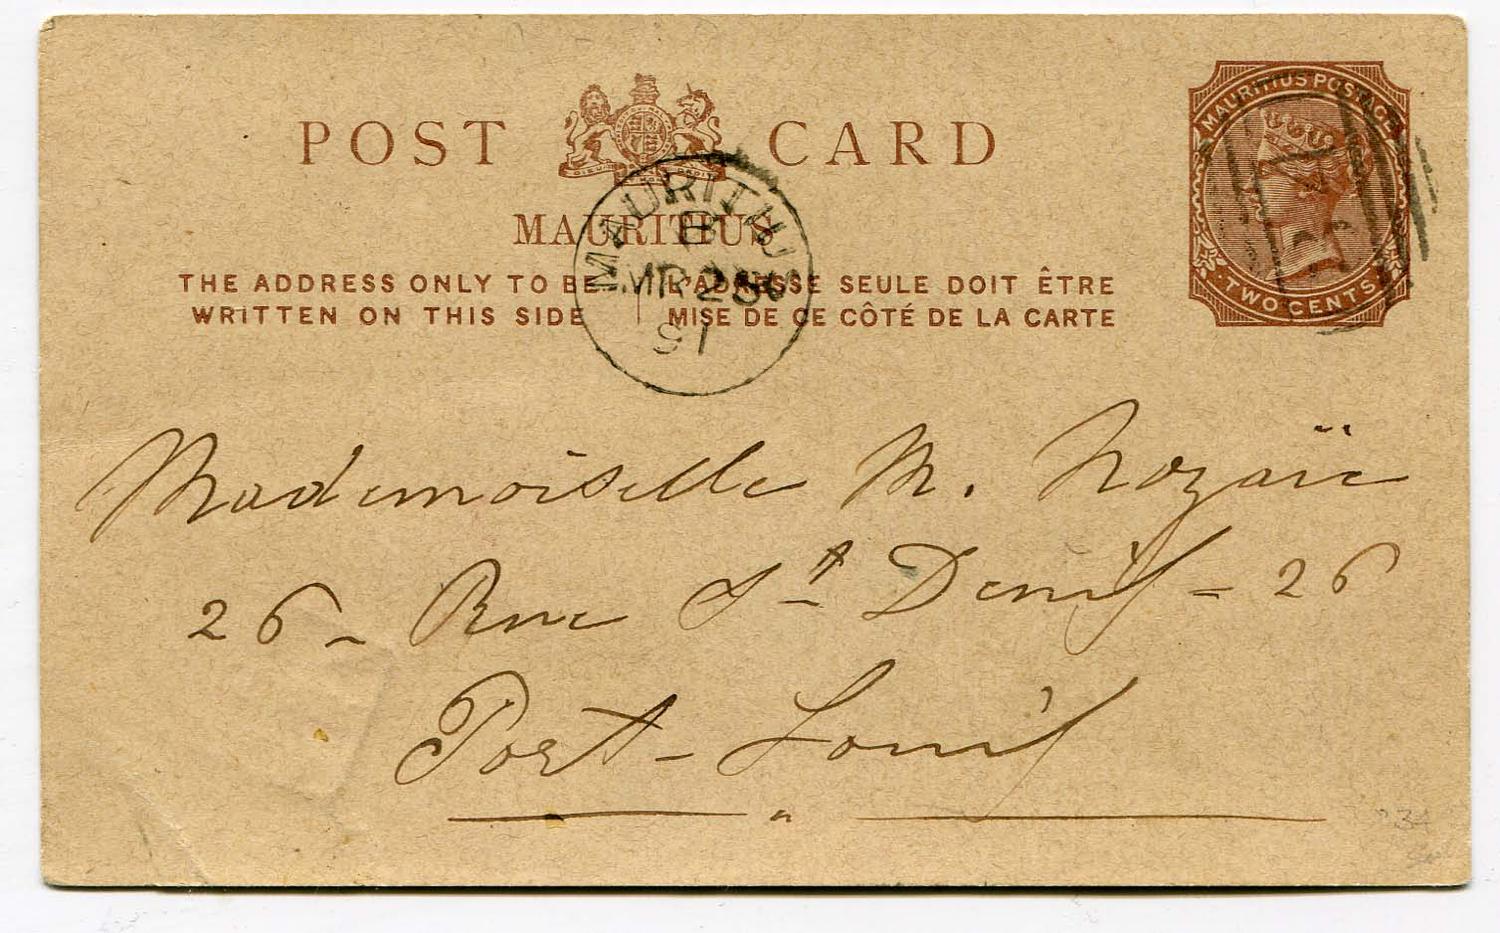 POST CARD
MAURITIUS
THE ADDRESS ONLY TO BE
WRITTEN ON THIS SIDE
L'ADRESSE SEULE DOIT ÊTRE
MISE DE CE CÔTÉ DE LA CARTE
MAURITIUS POSTAGE
TWO CENTS
MAURITIUS
B
MR 28
91
Mademoiselle M. Nozaïc
26 - Rue St Denis = 26
Port-Louis